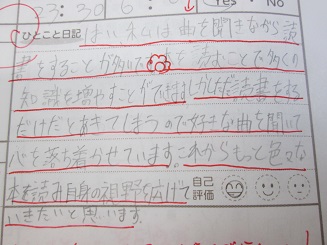 23:30 6 Yes No
ひとこと日記 はい私は曲を聞きながら読
書をすることが多いです本を読むことで多くの
知識を増やすことができますしかしただ読書をする
だけだとあきてしまうので好きな曲を聞いて
心を落ち着かせています。これからもっと色々な
本を読み自身の視野を広げて 自己
いきたいと思います。 評価